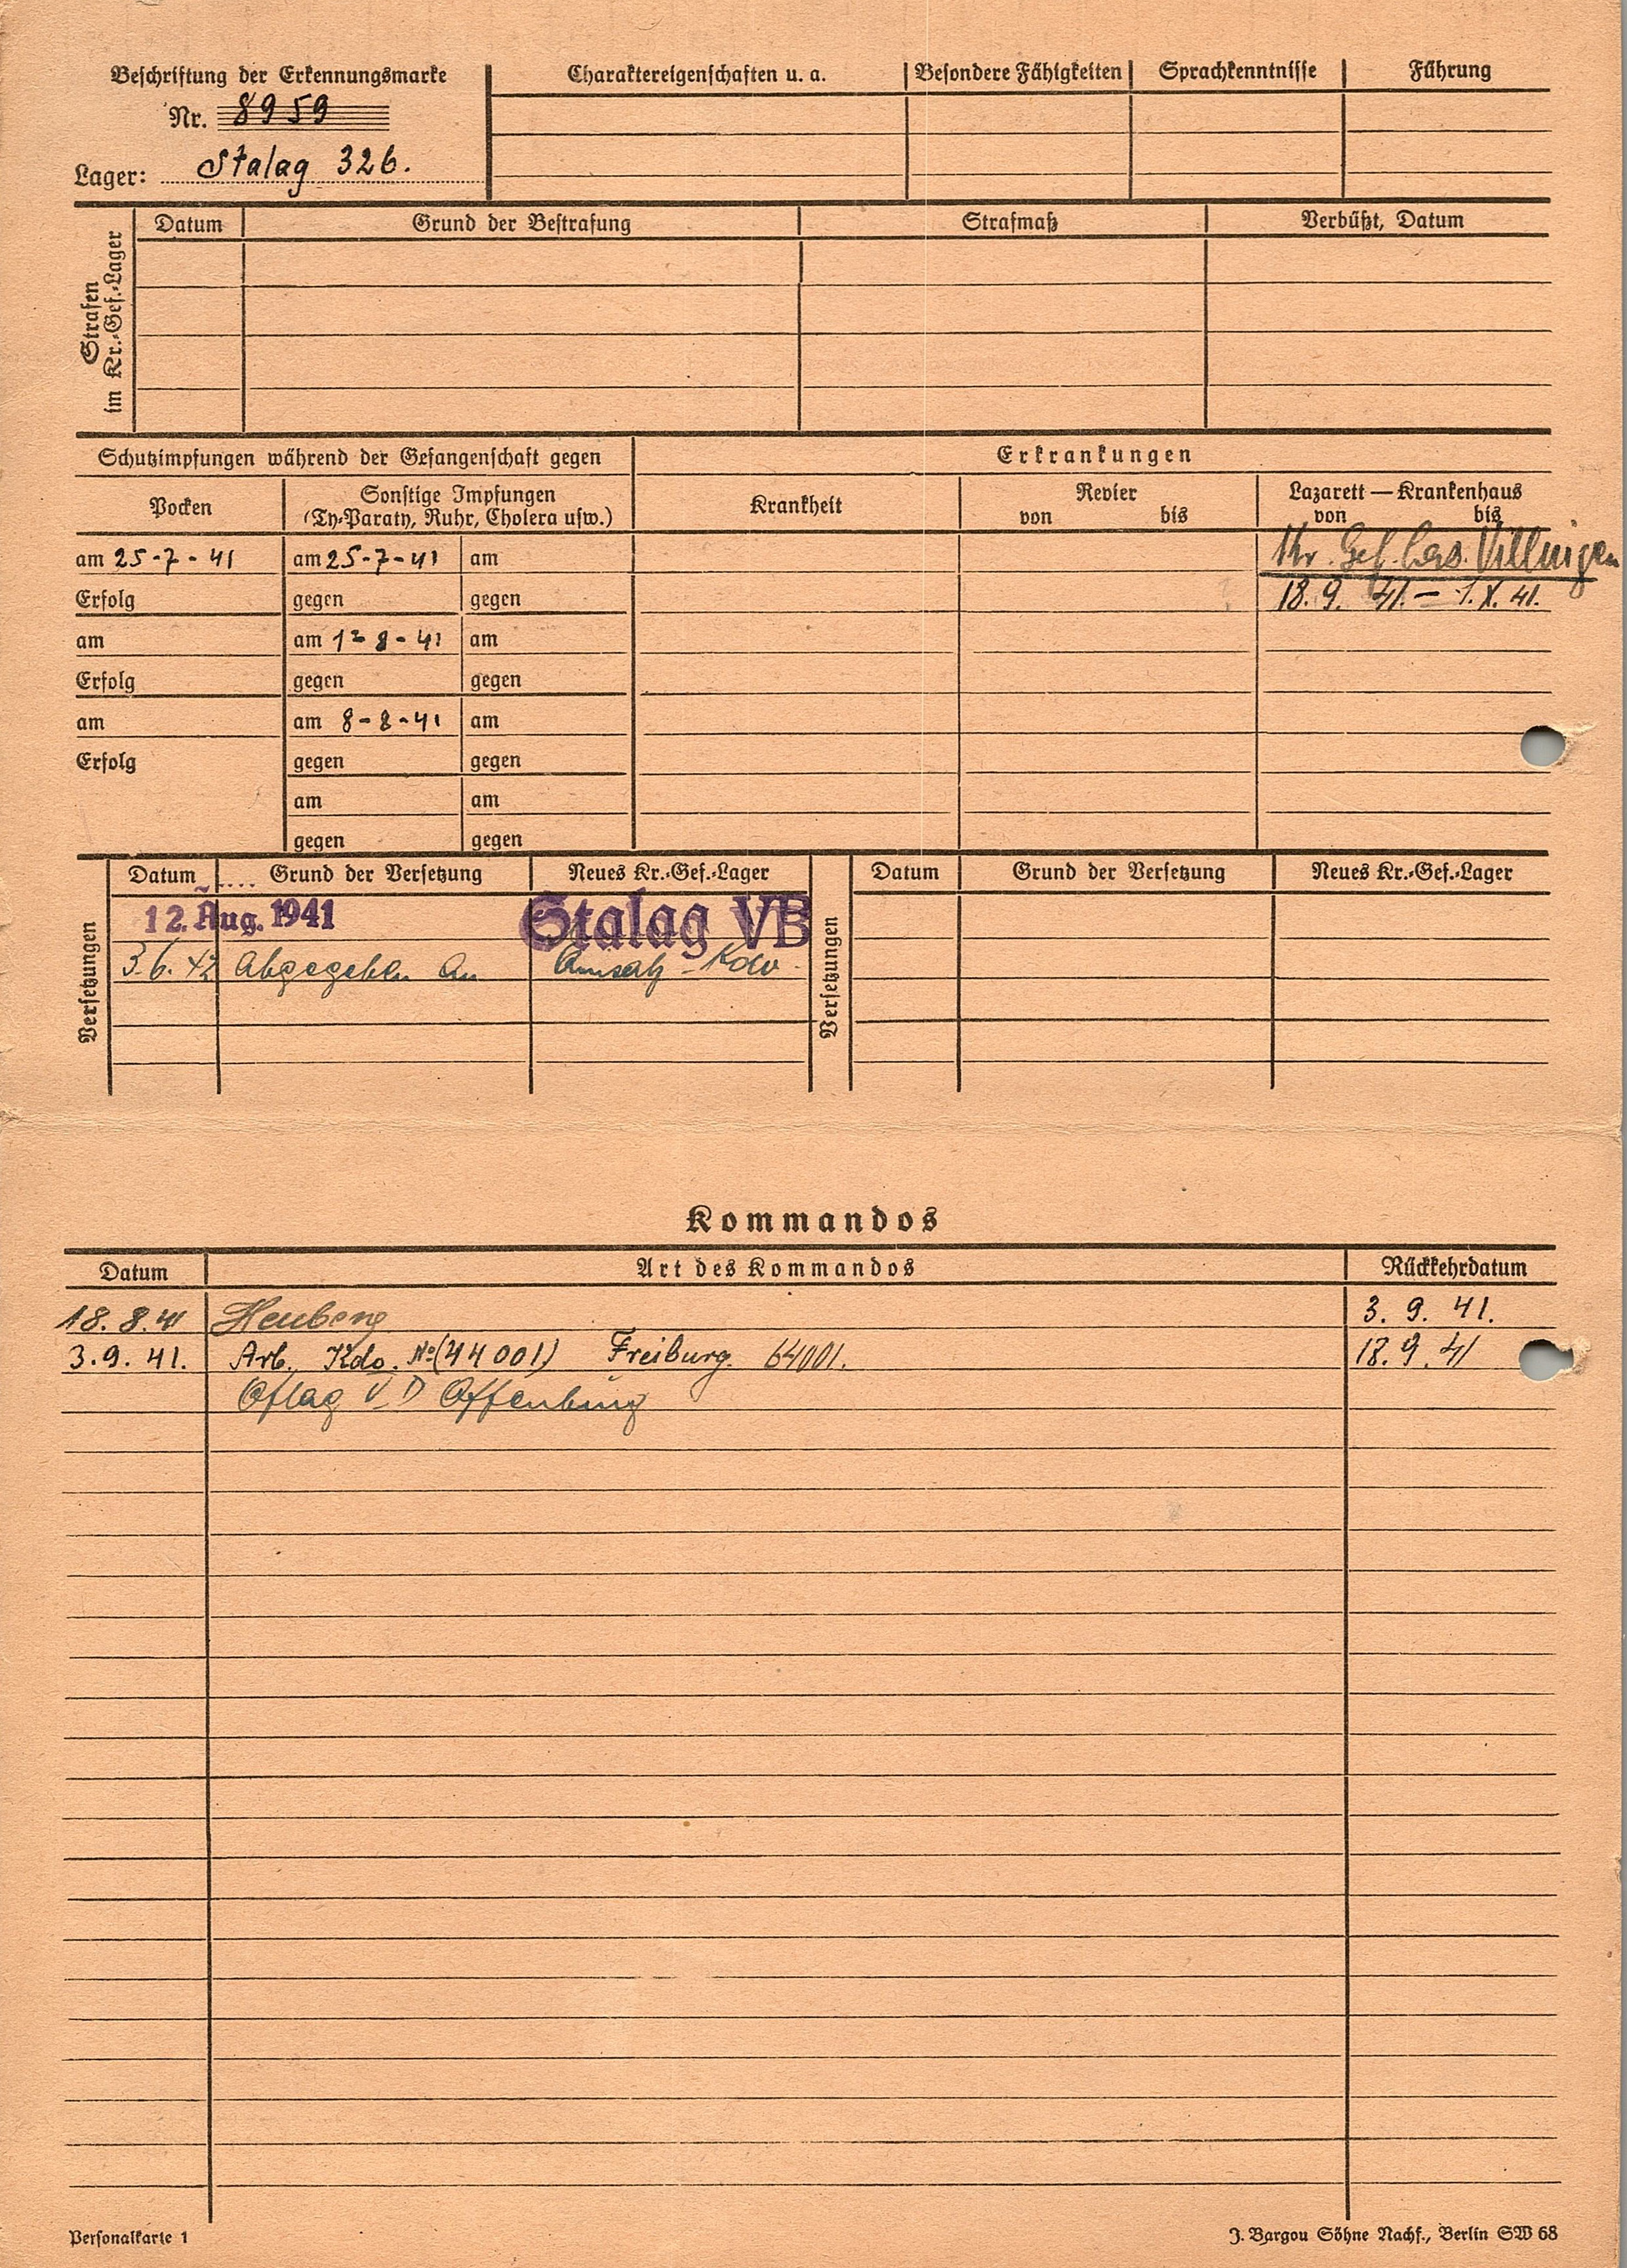 Beschriftung der Erkennungsmarke
Nr. 8959
Lager: Stalag 326.
Charaktereigenschaften u. a. Besondere Fähigkeiten Sprachkenntnisse Führung
Strafen im Kr.-Gef.-Lager
Datum Grund der Bestrafung Strafmaß Verbüßt, Datum
Schutzimpfungen während der Gefangenschaft gegen Erkrankungen
Pocken Sonstige Impfungen Krankheit Revier Lazarett — Krankenhaus
(Ty-Paraty, Ruhr, Cholera usw.) von bis von bis
am 25-7-41 am 25-7-41 am Kr. Gef. Villingen
Erfolg gegen gegen 18. 9. 41. – 1. X. 41.
am am 1-8-41 am
Erfolg gegen gegen
am am 8-8-41 am
Erfolg gegen gegen
am am
gegen gegen
Versetzungen
Datum Grund der Versetzung Neues Kr.-Gef.-Lager
12. Aug. 1941 Stalag VB
3.6.42 Abgegeben an Kdo.
Versetzungen
Datum Grund der Versetzung Neues Kr.-Gef.-Lager
Kommandos
Datum Art des Kommandos Rückkehrdatum
18.8.41 Heuberg 3. 9. 41.
3.9.41. Arb. Kdo. No (44001) Freiburg. 64001. 18. 9. 41
Oflag V D Offenburg
Personalkarte 1
J. Bargou Söhne Nachf., Berlin SW 68